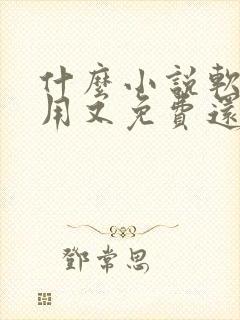 什麼小說軟
用又免費還
鄧常思